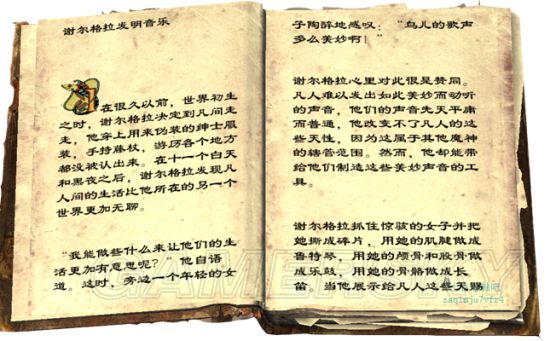 谢尔格拉发明音乐
在很久以前，世界初生
之时，谢尔格拉决定到凡间走
走，他穿上用来伪装的绅士服
装，手持藤杖，游历各个地方
都没被认出来。在十一个白天
和黑夜之后，谢尔格拉发现凡
人间的生活比他所在的另一个
世界更加无聊。
“我能做些什么来让他们的生
活更加有意思呢？”他自语
道。这时，旁边一个年轻的女
子陶醉地感叹：“鸟儿的歌声
多么美妙啊！”
谢尔格拉心里对此很是赞同。
凡人难以发出如此美妙而动听
的声音，他们的声音先天平庸
而普通，他改变不了凡人的这
些天性，因为这属于其他魔神
的辖管范围。然而，他却能带
给他们制造这些美妙声音的工
具。
谢尔格拉抓住惊骇的女子并把
她撕成碎片，用她的肌腱做成
鲁特琴，用她的颅骨和股骨做
成乐鼓，用她的骨骼做成长
笛。当他展示给凡人这些天赐
GAMERSKY
zaqimju7vfr4